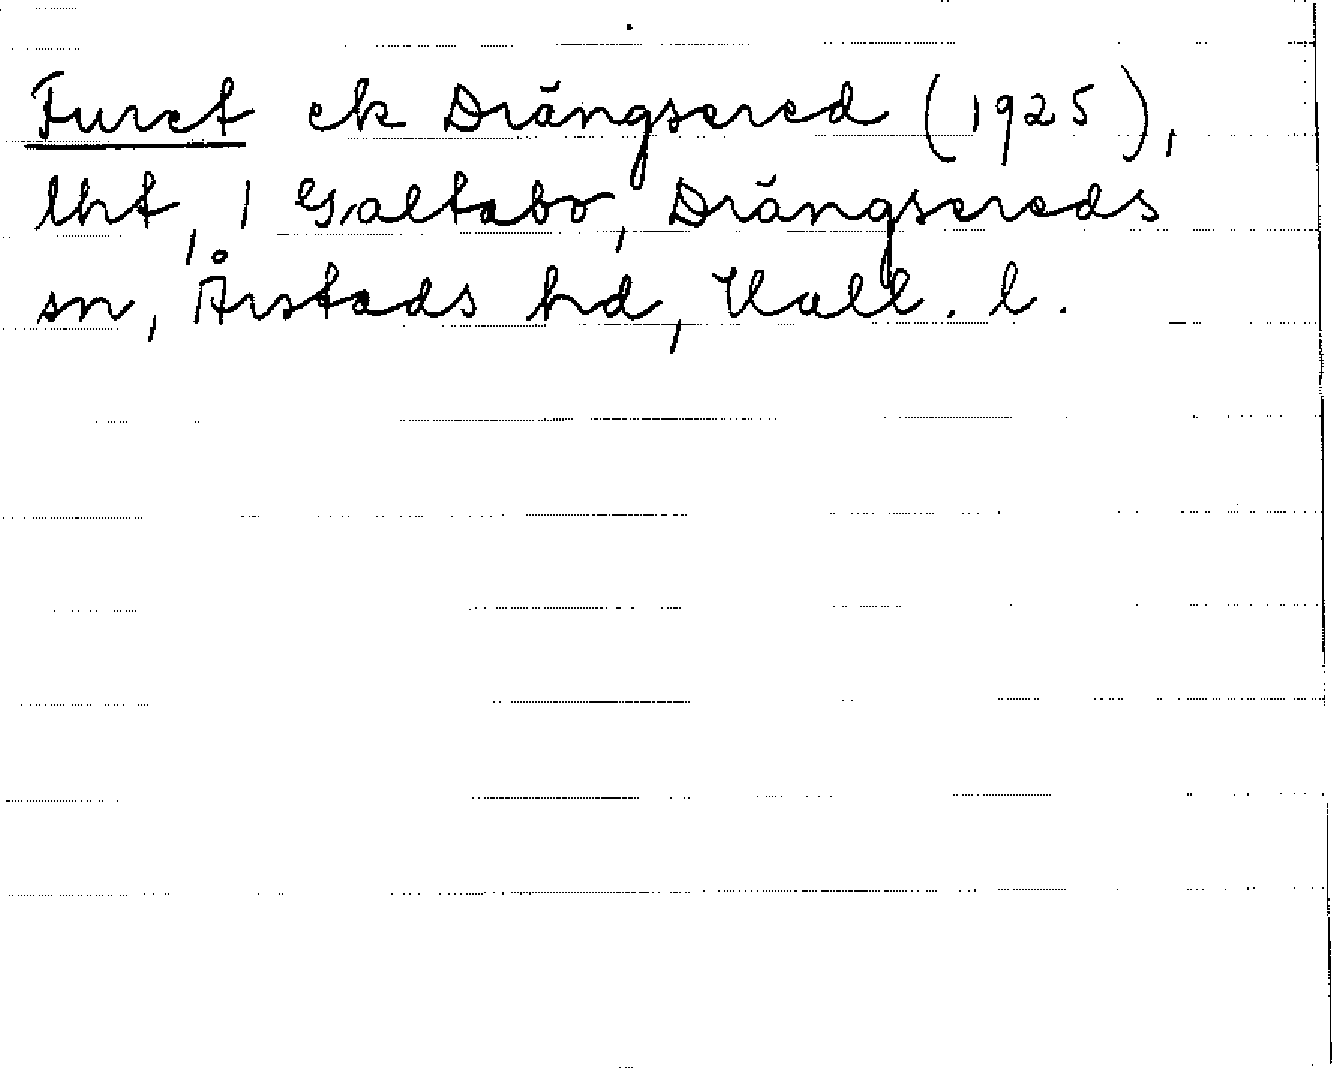 Furet ek Drängsered (1925),
lht, 1 Galtabo, Drängsereds
sn, Årstads hd, Hall. l.